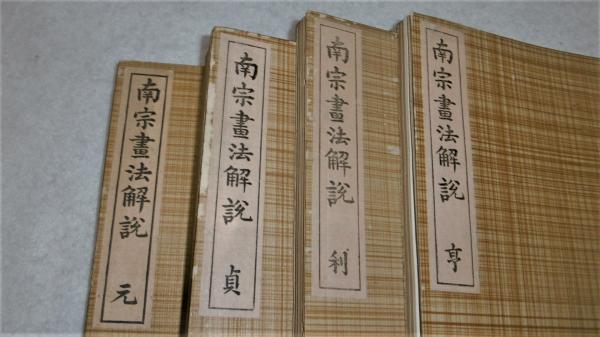 南宗畫法解說 元
南宗畫法解說 貞
南宗畫法解說 利
南宗畫法解說 亨